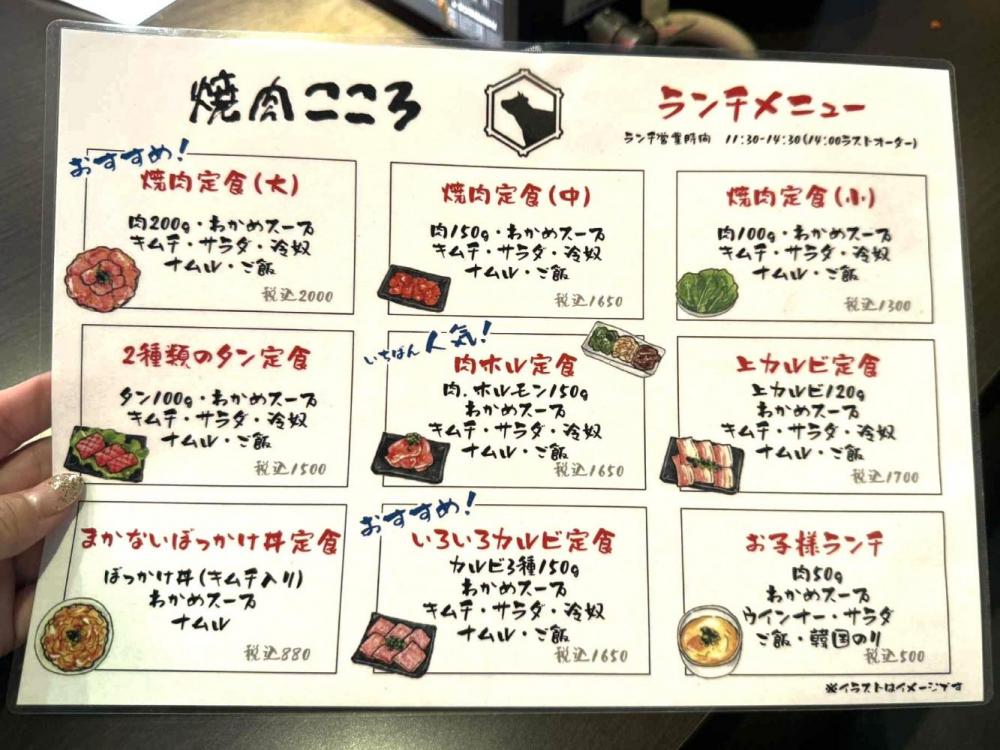 焼肉こころ
ランチメニュー
ランチ営業時間 11:30-14:30(14:00ラストオーダー)
おすすめ!
焼肉定食(大)
肉200g・わかめスープ
キムチ・サラダ・冷奴
ナムル・ご飯
税込2000
焼肉定食(中)
肉150g・わかめスープ
キムチ・サラダ・冷奴
ナムル・ご飯
税込1650
焼肉定食(小)
肉100g・わかめスープ
キムチ・サラダ・冷奴
ナムル・ご飯
税込1300
2種類のタン定食
タン100g・わかめスープ
キムチ・サラダ・冷奴
ナムル・ご飯
税込1500
いちばん人気!
肉ホル定食
肉.ホルモン150g
わかめスープ
キムチ・サラダ・冷奴
ナムル・ご飯
税込1650
上カルビ定食
上カルビ120g
わかめスープ
キムチ・サラダ・冷奴
ナムル・ご飯
税込1700
まかないぼっかけ丼定食
ぼっかけ丼(キムチ入り)
わかめスープ
ナムル
税込880
おすすめ!
いろいろカルビ定食
カルビ3種150g
わかめスープ
キムチ・サラダ・冷奴
ナムル・ご飯
税込1650
お子様ランチ
肉50g
わかめスープ
ウインナー・サラダ
ご飯・韓国のり
税込500
※イラストはイメージです